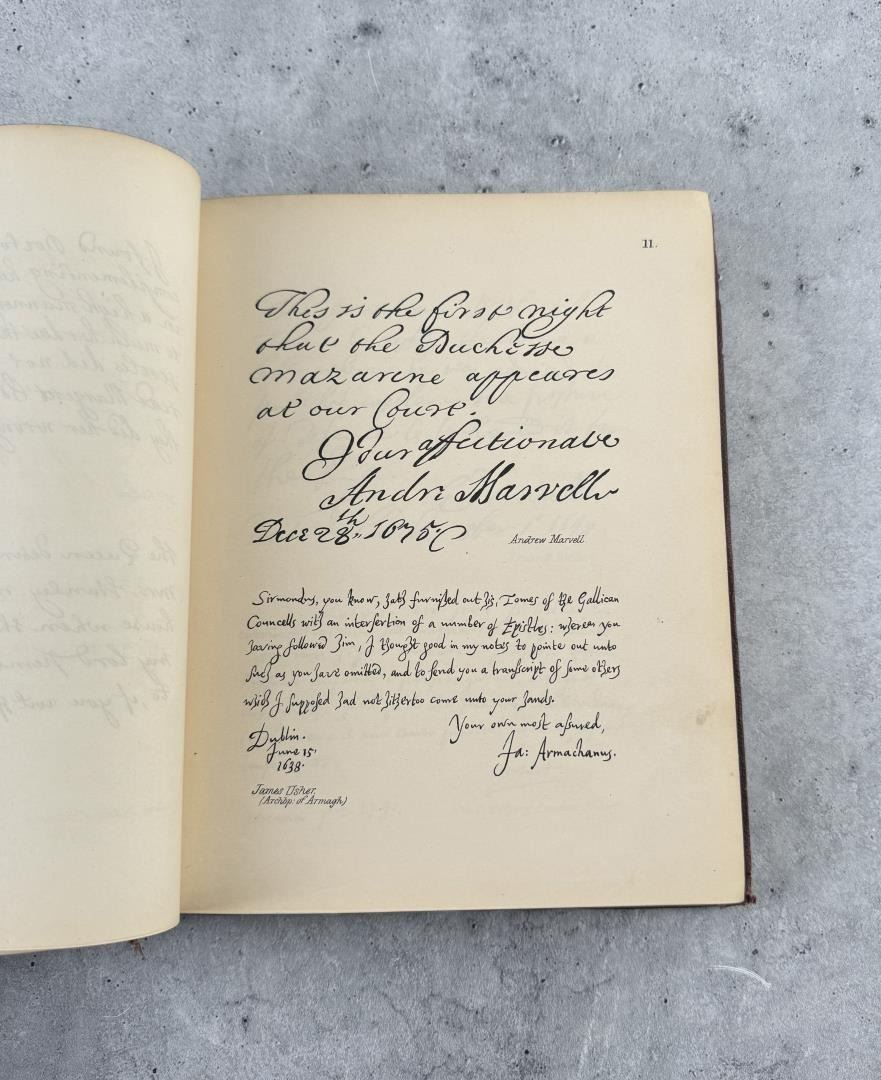 11.
This is the first night
that the Duchesse
mazarine appeares
at our Court.
Your affectionate
Andr: Marvell
Dece 28th, 1675.
Andrew Marvell
Sirmondus, you know, hath furnished out his Tomes of the Gallican
Councells with an interfertion of a number of Epistles: wherein you
having followed him, I thought good in my notes to pointe out unto
such as you have omitted, and to send you a transcript of some others
which I supposed had not hithertoo come unto your hands.
Your own most assured,
Ja: Armachanus.
Dublin.
June 15.
1638.
James Usher,
(Archbp: of Armagh)